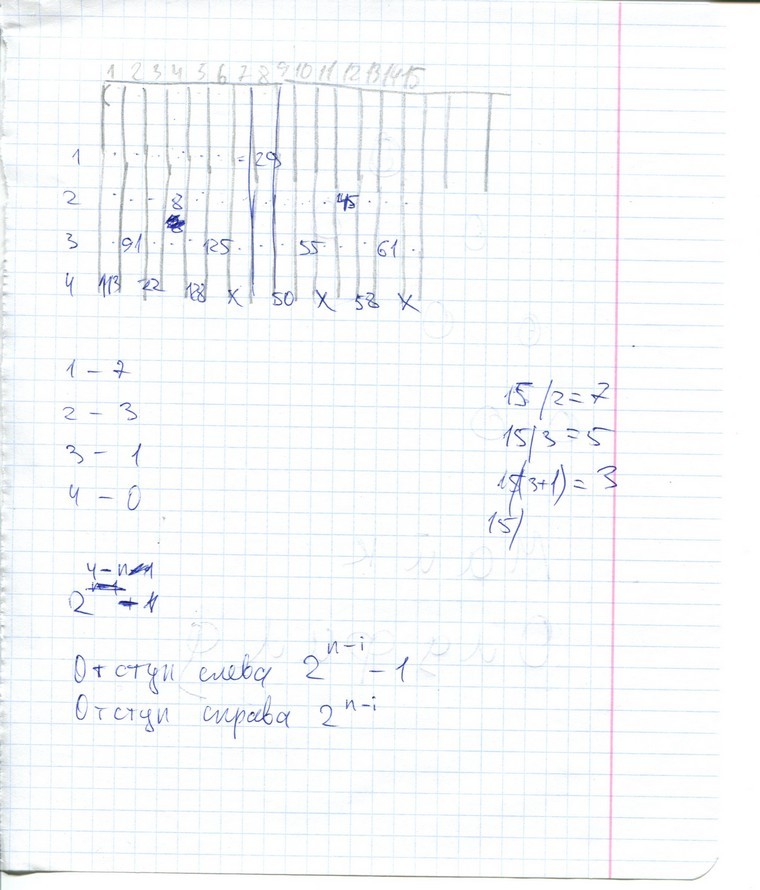 1 2 3 4 5 6 7 8 9 10 11 12 13 14 15
1 29
2 8 45
3 91 125 55 61
4 113 22 128 X 50 X 58 X
1 - 7
2 - 3
3 - 1
4 - 0
15/2=7
15/3=5
15/(3+1)=3
15/
Отступ слева 2^n-i - 1
Отступ справа 2^n-i